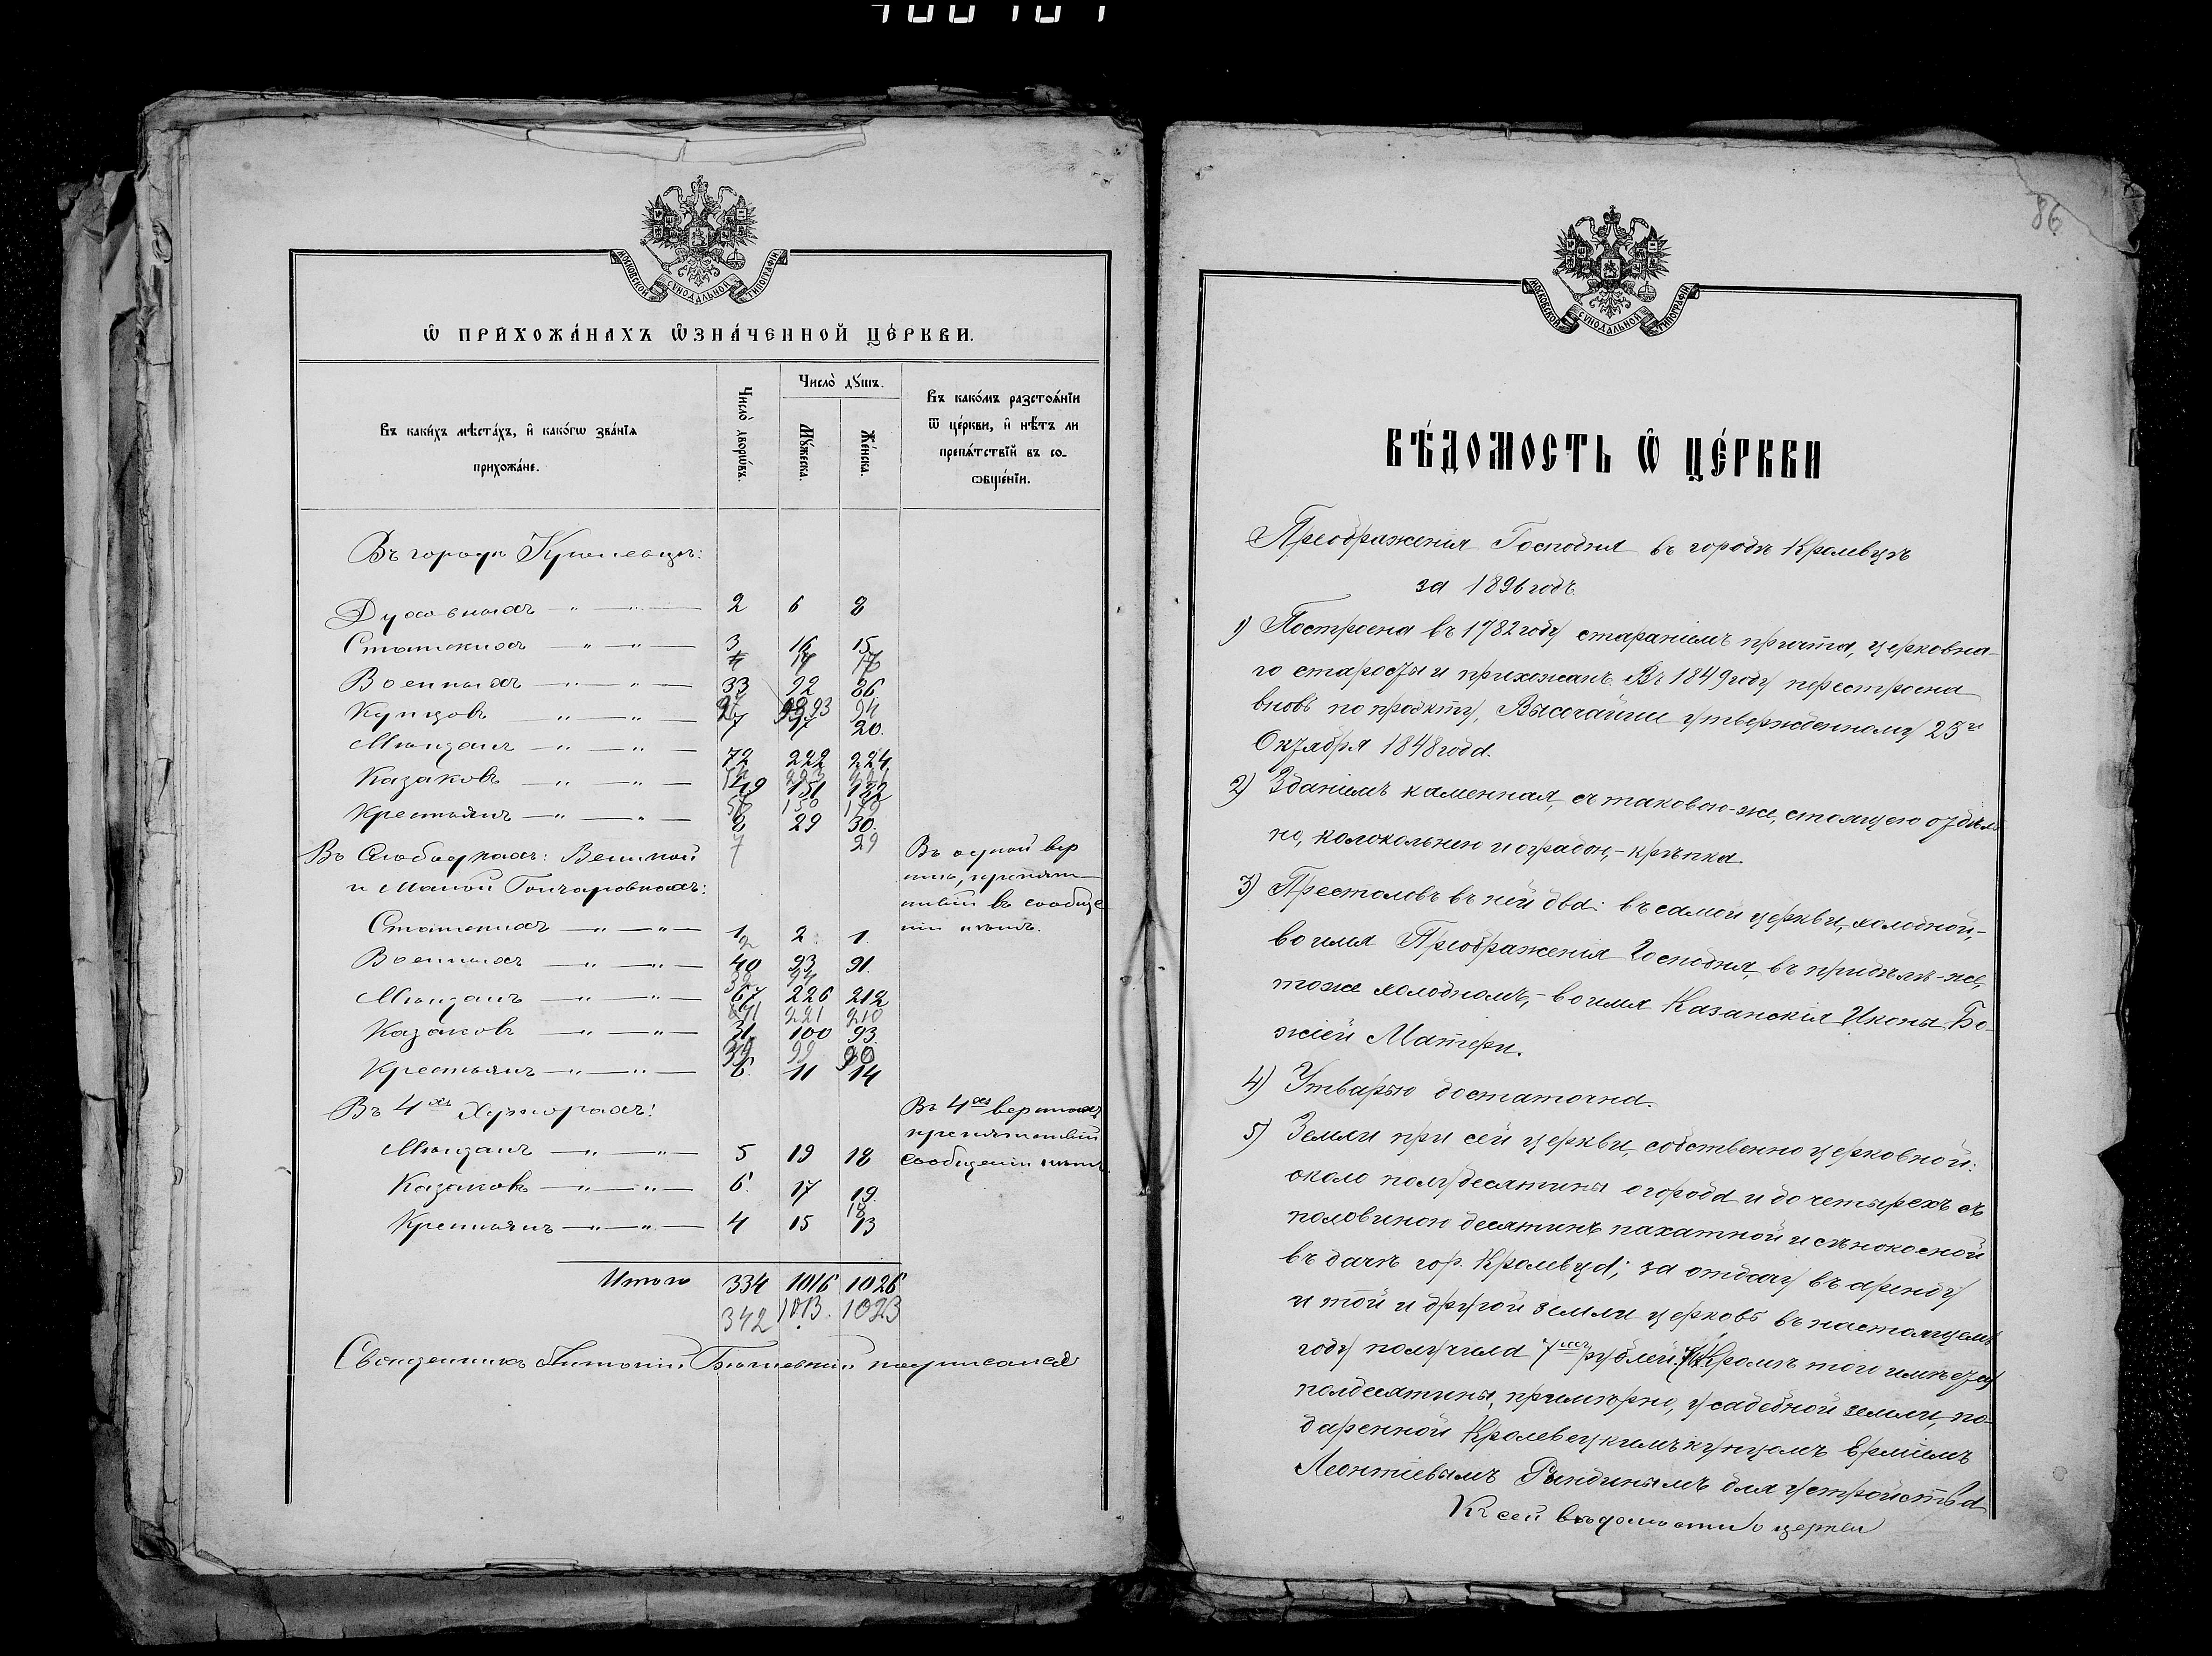 МОСКОВСКОЙ СѴНОДАЛЬНОЙ ТИПОГРАФІИ
Ѡ ПРИХОЖА́НАХЪ Ѡ҆ЗНА́ЧЕННОЙ ЦЕ́РКВИ.
Въ каки́хъ мѣста́хъ, и҆ како́гѡ зва́нїѧ прихожа́не.
Число̀ дворѡ́въ.
Число̀ дꙋ́шъ.
Мꙋ́жеска.
Же́нска.
Въ како́мъ разстоѧ́нїи
ѿ це́ркви, и҆ нѣ́тъ ли
препѧ́тствїй въ со-
ѻбще́нїи.
Въ городѣ Кролевцѣ:
Духовныхъ — " — " — 2 6 8
Статскихъ — " — " — 3 16 15
4 14 17
Военныхъ — " — " — 33 92 86
93 94
Купцовъ " — " — 7 17 20.
Мѣщанъ — " — " — 72 222 224
Казаковъ — " — " — 49 151 182
150
Крестьянъ — " — " — 8 29 30.
7 29
Въ Слободкахъ: Великой
и Малой Гончаровкахъ:
Въ одной вер
стѣ, препят-
ствій въ сообще
ніи нѣтъ.
Статскихъ — " — " — 1 2 1.
2
Военныхъ — " — " — 40 93 91.
Мѣщанъ — " — " — 67 226 212
221 210
Казаковъ — " — " — 31. 100 93.
99 90
Крестьянъ — " — " — 6. 11 14
Въ 4хъ Хуторахъ:
Въ 4хъ верстахъ
препятствій
сообщеніи нѣтъ.
Мѣщанъ — " — " — 5 19 18
Казаковъ — " — " — 6. 17 19.
18
Крестьянъ — " — " — 4 15 13
Итого 334 1016 1026
342 1013. 1023
Священникъ Антоній подписался
86
МОСКОВСКОЙ СѴНОДАЛЬНОЙ ТИПОГРАФІИ
ВѢ́ДОМОСТЬ Ѡ ЦЕ́РКВИ
Преображенія Господня въ городѣ Кролевцѣ
за 1896 годъ.
1) Построена въ 1782 году стараніемъ причта, церковна-
го старосты и прихожанъ. Въ 1849 году перестроена
вновь по проэкту, Высочайше утвержденному 25го
Октября 1848 года.
2) Зданіемъ каменная, съ таковою-же, стоящею отдѣль
но, колокольнею и оградою, – крѣпка.
3) Престоловъ въ ней два: въ самой церкви, холодной, –
во имя Преображенія Господня, въ придѣлѣ-же,
тоже холодномъ, – во имя Казанскія Иконы Бо-
жіей Матери.
4) Утварью достаточна.
5) Земли при сей церкви, собственно церковной:
около полудесятины огорода и до четырехъ съ
половиною десятинъ пахатной и сѣнокосной
въ дачѣ гор. Кролевца; за отдачу въ аренду
и той и другой земли церковь въ настоящемъ
году получила рублей. Кромѣ того имѣетъ
полдесятины, примѣрно, усадебной земли, по-
даренной Кролевецкимъ купцомъ Ерміемъ
Леонтіевымъ Рындинымъ для устройства
Къ сей вѣдомости о церкви